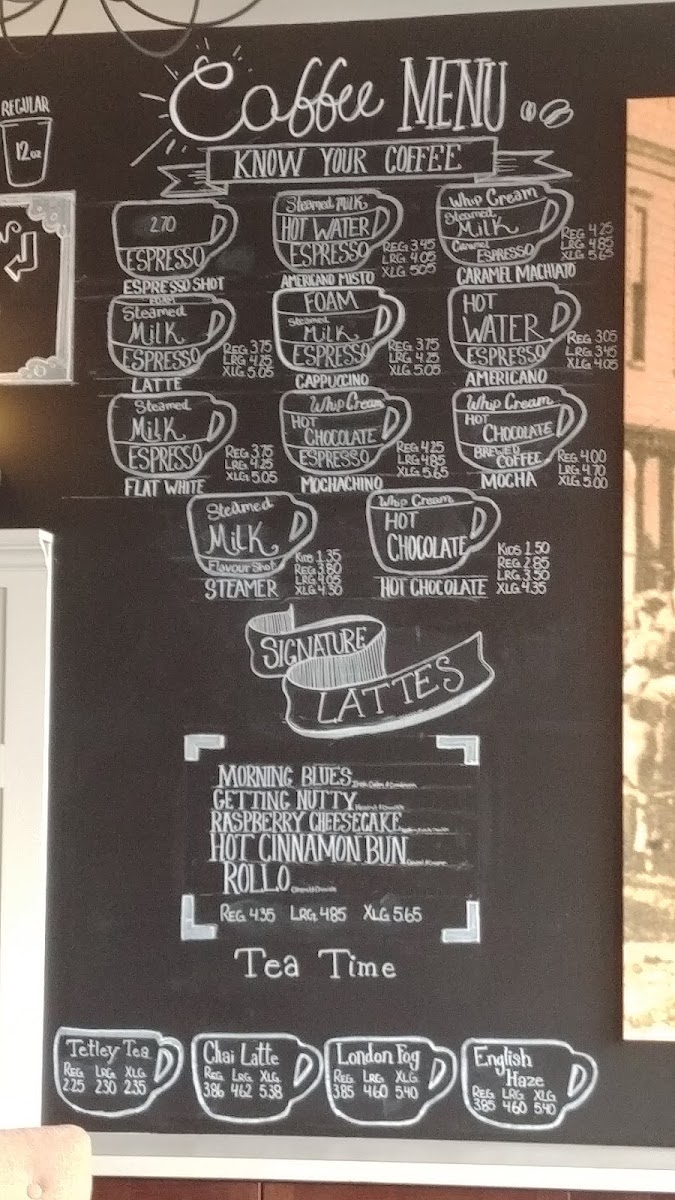 REGULAR
12oz
Coffee MENU
KNOW YOUR COFFEE
2.70
ESPRESSO
ESPRESSO SHOT
Steamed Milk
HOT WATER
ESPRESSO
REG 3.45
LRG 4.05
XLG 5.05
AMERICANO MISTO
Whip Cream
Steamed
Milk
Caramel
ESPRESSO
REG 4.25
LRG 4.85
XLG 5.65
CARAMEL MACHIATO
FOAM
Steamed
Milk
ESPRESSO
REG 3.75
LRG 4.25
XLG 5.05
LATTE
FOAM
Steamed
Milk
ESPRESSO
REG 3.75
LRG 4.25
XLG 5.05
CAPPUCCINO
HOT
WATER
ESPRESSO
REG 3.05
LRG 3.45
XLG 4.05
AMERICANO
Steamed
Milk
ESPRESSO
REG 3.75
LRG 4.25
XLG 5.05
FLAT WHITE
Whip Cream
HOT
CHOCOLATE
ESPRESSO
REG 4.25
LRG 4.85
XLG 5.65
MOCHACHINO
Whip Cream
HOT
CHOCOLATE
BREWED
COFFEE
REG 4.00
LRG 4.70
XLG 5.00
MOCHA
Steamed
Milk
Flavour Shot
KIDS 1.35
REG 3.80
LRG 4.05
XLG 4.50
STEAMER
Whip Cream
HOT
CHOCOLATE
KIDS 1.50
REG 2.85
LRG 3.50
XLG 4.35
HOT CHOCOLATE
SIGNATURE
LATTES
MORNING BLUES
GETTING NUTTY
RASPBERRY CHEESECAKE
HOT CINNAMON BUN
ROLLO
REG 4.35 LRG 4.85 XLG 5.65
Tea Time
Tetley Tea
REG LRG XLG
2.25 2.30 2.35
Chai Latte
REG LRG XLG
3.86 4.62 5.38
London Fog
REG LRG XLG
3.85 4.60 5.40
English
Haze
REG LRG XLG
3.85 4.60 5.40